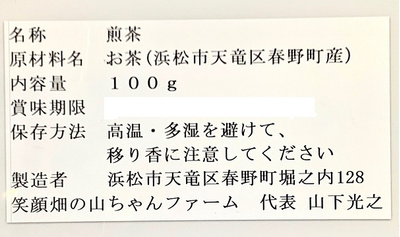 名称　　　煎茶
原材料名　お茶(浜松市天竜区春野町産)
内容量　　１００ｇ
賞味期限
保存方法　高温・多湿を避けて、
移り香に注意してください
製造者　　浜松市天竜区春野町堀之内128
笑顔畑の山ちゃんファーム　代表 山下光之